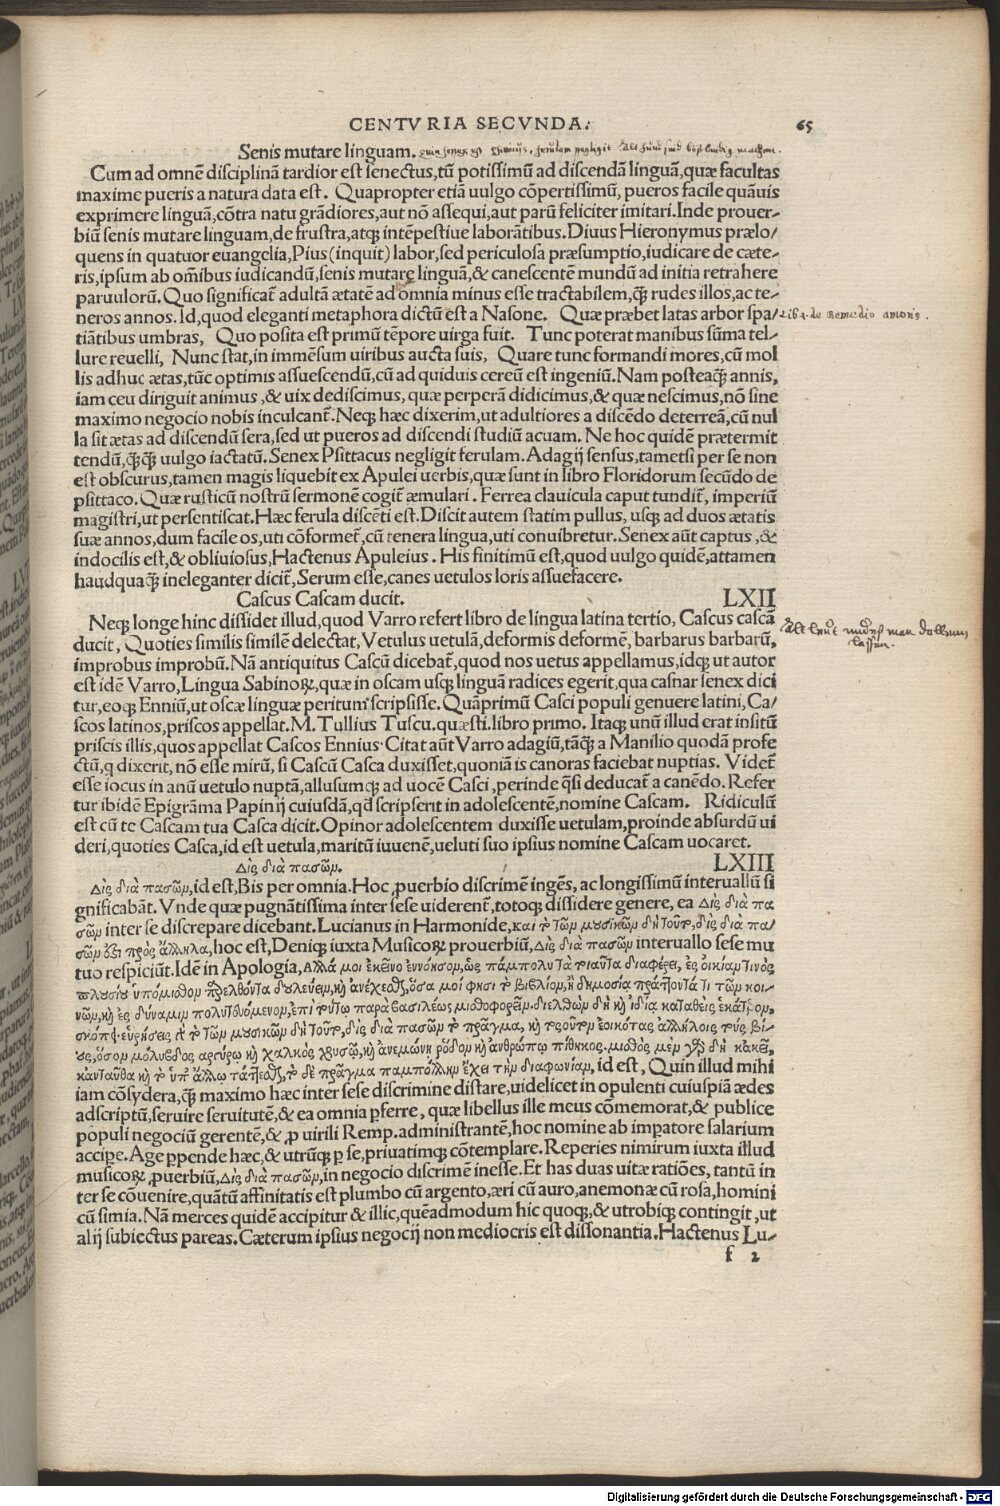 CENTVRIA SECVNDA.
65
Senis mutare linguam.
Cum ad omnē disciplinā tardior est senectus, tū potissimū ad discendā linguā, quæ facultas
maxime pueris a natura data est. Quapropter etiā uulgo cōpertissimū, pueros facile quāuis
exprimere linguā, cōtra natu grādiores, aut nō assequi, aut parū feliciter imitari. Inde prouer-
biū senis mutare linguam, de frustra, atq; intēpestiue laborātibus. Diuus Hieronymus prælo/
quens in quatuor euangelia, Pius (inquit) labor, sed periculosa præsumptio, iudicare de cæte-
ris, ipsum ab omībus iudicandū, senis mutare linguā, & canescentē mundū ad initia retrahere
paruulorū. Quo significat̄ adultā ætatē ad omnia minus esse tractabilem, q̄ȝ rudes illos, ac te-
neros annos. Id, quod eleganti metaphora dictū est a Nasone. Quæ præbet latas arbor spa/
tiātibus umbras, Quo posita est primū tēpore uirga fuit. Tunc poterat manibus sūma tel-
lure reuelli, Nunc stat, in immēsum uiribus aucta suis, Quare tunc formandi mores, cū mol
lis adhuc ætas, tūc optimis assuescendū, cū ad quiduis cereū est ingeniū. Nam posteaq̄ȝ annis,
iam ceu diriguit animus, & uix dediscimus, quæ perperā didicimus, & quæ nescimus, nō sine
maximo negocio nobis inculcant̄. Neq; hæc dixerim, ut adultiores a discēdo deterreā, cū nul
la sit ætas ad discendū sera, sed ut pueros ad discendi studiū acuam. Ne hoc quidē prætermit
tendū, q̄ȝq̄ȝ uulgo iactatū. Senex Psittacus negligit ferulam. Adagij sensus, tametsi per se non
est obscurus, tamen magis liquebit ex Apulei uerbis, quæ sunt in libro Floridorum secūdo de
psittaco. Quæ rusticū nostrū sermonē cogit̄ æmulari. Ferrea clauicula caput tundit̄, imperiū
magistri, ut persentiscat. Hæc ferula discēti est. Discit autem statim pullus, usq; ad duos ætatis
suæ annos, dum facile os, uti cōformet̄, cū tenera lingua, uti conuibretur. Senex aūt captus, &
indocilis est, & obliuiosus, Hactenus Apuleius. His finitimū est, quod uulgo quidē, attamen
haudquaq̄ȝ ineleganter dicit̄, Serum esse, canes uetulos loris assuefacere.
Cascus Cascam ducit. LXII
Neq; longe hinc dissidet illud, quod Varro refert libro de lingua latina tertio, Cascus cascā
ducit, Quoties similis similē delectat, Vetulus uetulā, deformis deformē, barbarus barbarū,
improbus improbū. Nā antiquitus Cascū dicebāt, quod nos uetus appellamus, idq; ut autor
est idē Varro, Lingua Sabinoꝝ, quæ in oscam usq; linguā radices egerit, qua casnar senex dici
tur, eoq; Enniū, ut oscæ linguæ peritum scripsisse. Quāprimū Casci populi genuere latini, Ca/
scos latinos, priscos appellat. M. Tullius Tuscu. quæsti. libro primo. Itaq; unū illud erat insitū
priscis illis, quos appellat Cascos Ennius. Citat aūt Varro adagiū, tāq̄ȝ a Manilio quodā profe
ctū, q dixerit, nō esse mirū, si Cascū Casca duxisset, quoniā is canoras faciebat nuptias. Videt̄
esse iocus in anū uetulo nuptā, allusumq; ad uocē Casci, perinde q̄si deducat̄ a canēdo. Refer
tur ibidē Epigrāma Papinij cuiusdā, qd̄ scripserit in adolescentē, nomine Cascam. Ridiculū
est cū te Cascam tua Casca dicit. Opinor adolescentem duxisse uetulam, proinde absurdū ui
deri, quoties Casca, id est uetula, maritū iuuenē, ueluti suo ipsius nomine Cascam uocaret.
Δὶς διὰ πασῶν. LXIII
Δὶς διὰ πασῶν, id est, Bis per omnia. Hoc ꝓuerbio discrimē ingēs, ac longissimū interuallū si
gnificabāt. Vnde quæ pugnātissima inter sese uiderent̄, totoq; dissidere genere, ea Δὶς διὰ πα
σῶν inter se discrepare dicebant. Lucianus in Harmonide, καὶ τὸ τῶν μουσικῶν δὴ τοῦτο, δὶς διὰ πα/
σῶν ὀξὺ πρὸς ἄλληλα, hoc est, Deniq; iuxta Musicoꝝ prouerbiū, Δὶς διὰ πασῶν interuallo sese mu
tuo respiciūt. Idē in Apologia, Ἀλλά μοι ἐκεῖνο ἐννόησον, ὡς πάμπολυ τὰ τοιαῦτα διαφέρει, ἐς οἰκίαν τινὸς
id est, Quin illud mihi
iam cōsydera, q̄ȝ maximo hæc inter sese discrimine distare, uidelicet in opulenti cuiuspiā ædes
adscriptū, seruire seruitutē, & ea omnia ꝑferre, quæ libellus ille meus cōmemorat, & publice
populi negociū gerentē, & ꝓ uirili Remp. administrantē, hoc nomine ab imperatore salarium
accipe. Age ppende hæc, & utrūq; p se, priuatimq; cōtemplare. Reperies nimirum iuxta illud
musicoꝝ ꝓuerbiū, Δὶς διὰ πασῶν, in negocio discrimē inesse. Et has duas uitæ ratiōes, tantū in
ter se cōuenire, quātū affinitatis est plumbo cū argento, æri cū auro, anemonæ cū rosa, homini
cū simia. Nā merces quidē accipitur & illic, quēadmodum hic quoq;, & utrobiq; contingit, ut
alij subiectus pareas. Cæterum ipsius negocij non mediocris est dissonantia. Hactenus Lu-
f 2
Digitalisierung gefördert durch die Deutsche Forschungsgemeinschaft - DFG